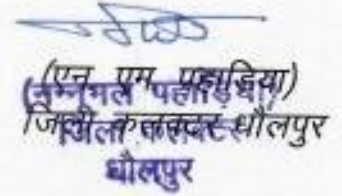 (एन एम पहाड़िया)
(नन्नूमल पहाड़िया)
जिला कलक्टर धौलपुर
जिला कलक्टर
धौलपुर